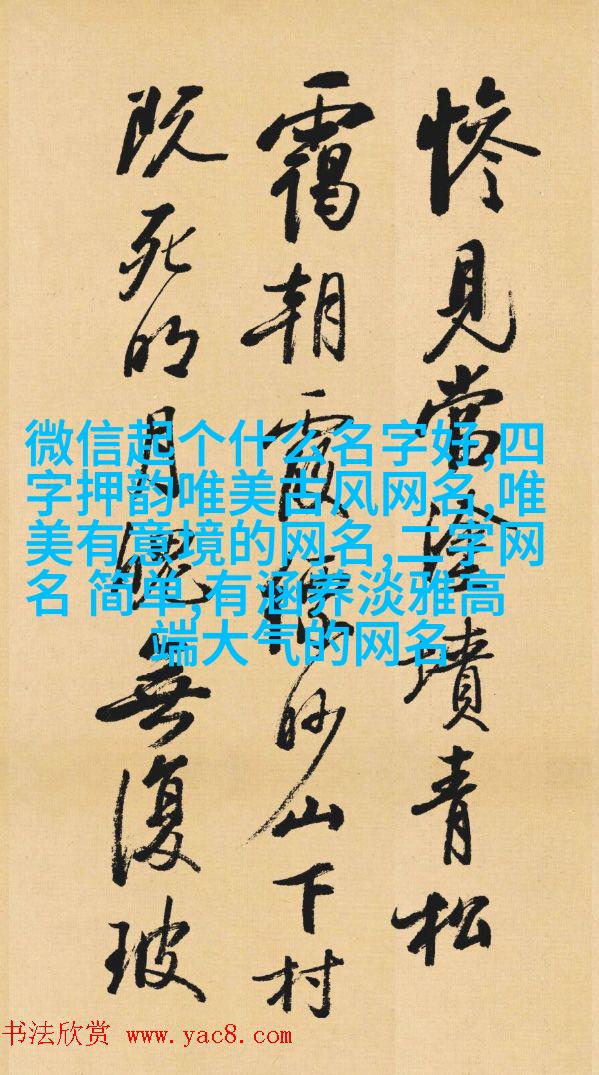 惨見當塗墳青松
靄朝霞縹眇山下村
既死明月魄無復玻
微信起个什么名字好,四
字押韵唯美古风网名,唯
美有意境的网名,二字网
名 简单,有涵养淡雅高
端大气的网名
书法欣赏 www.yac8.com